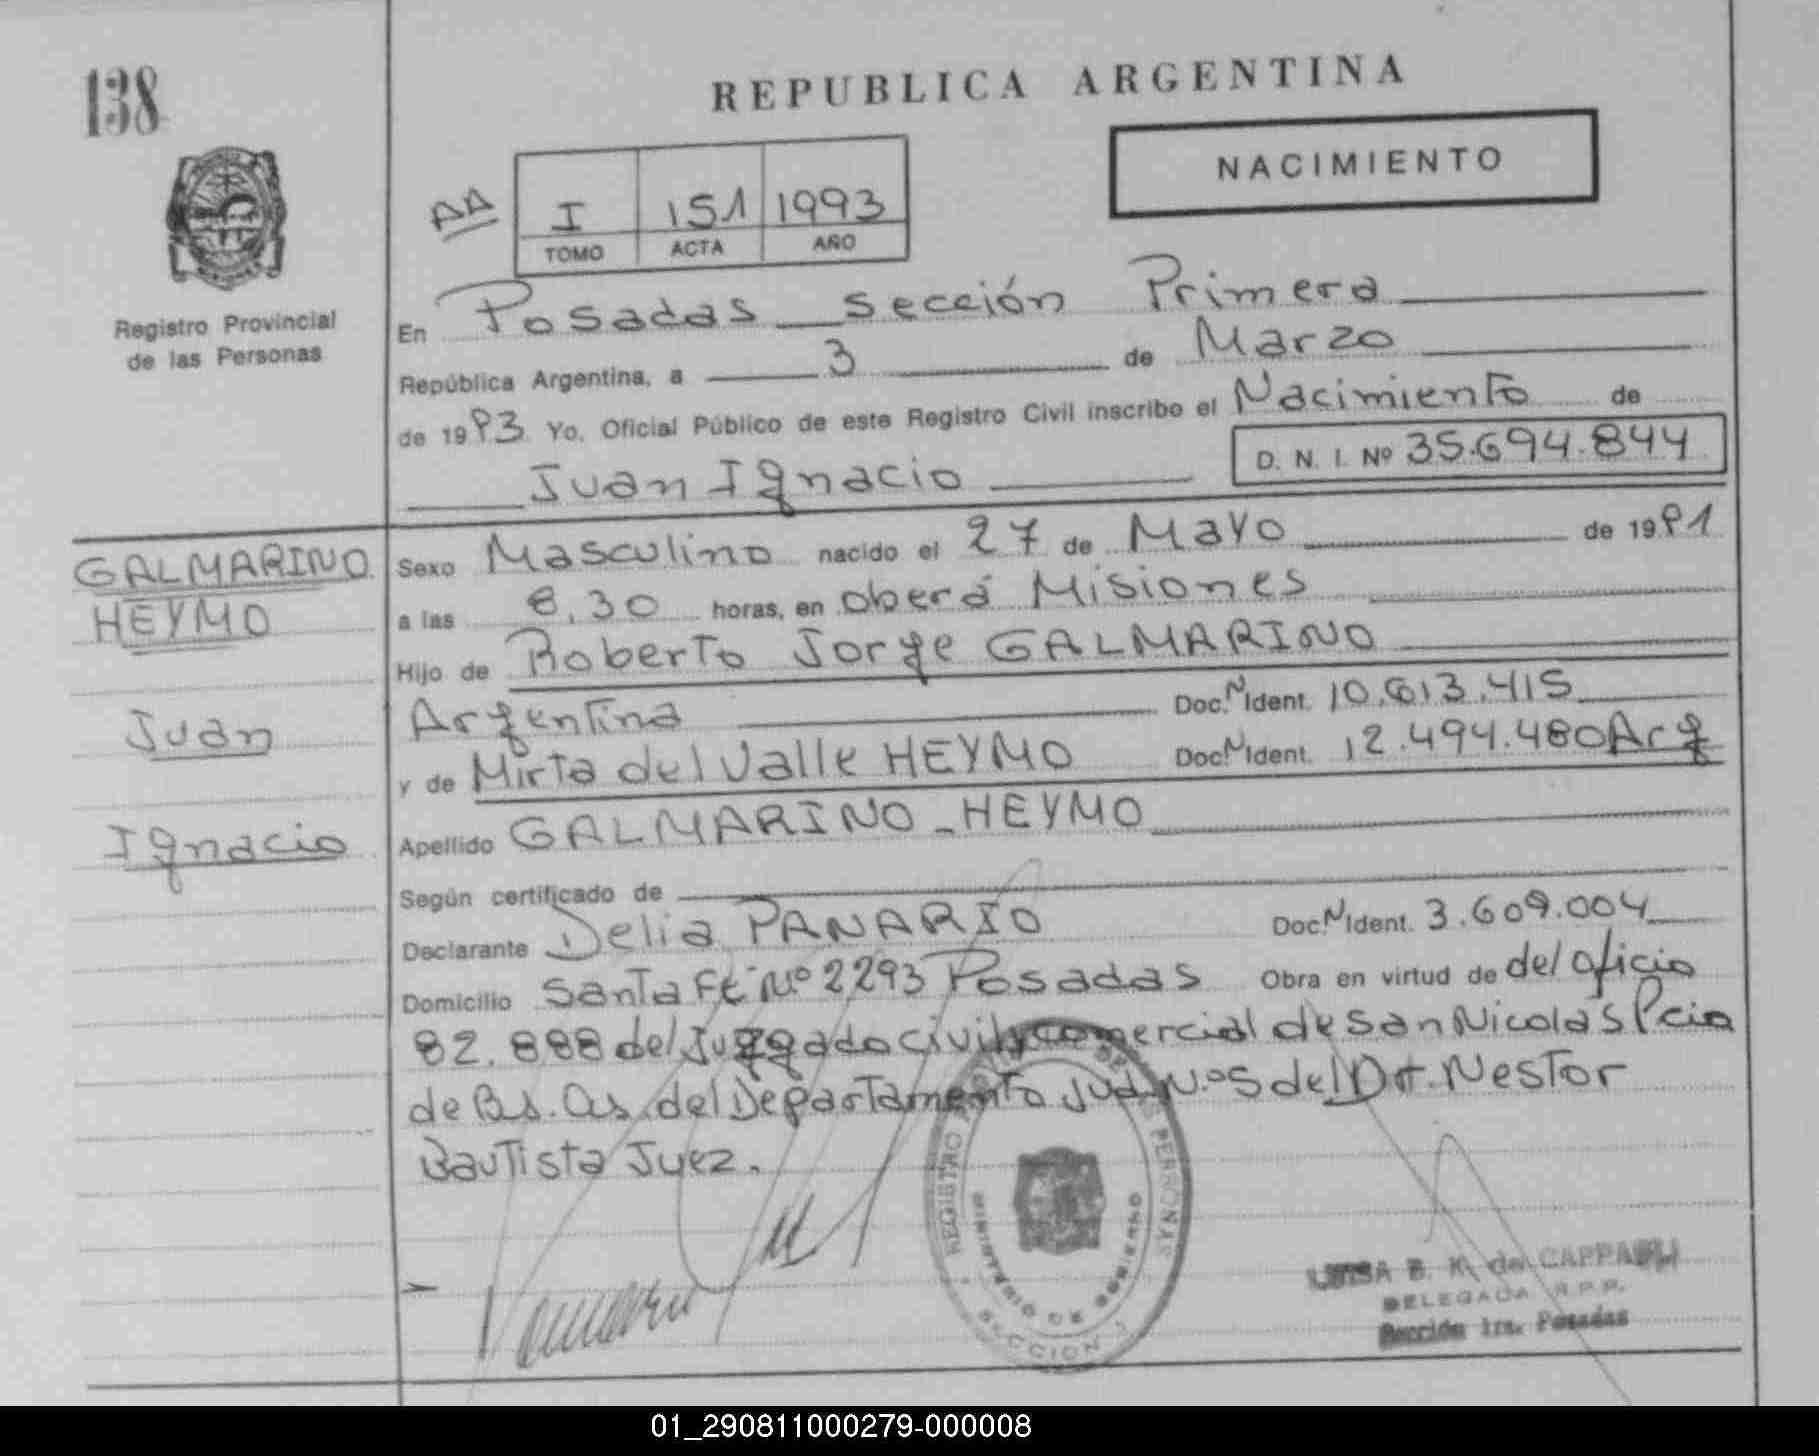 138
REPUBLICA ARGENTINA
NACIMIENTO
AA
I 151 1993
TOMO ACTA AÑO
Registro Provincial
de las Personas
En Posadas sección Primera
República Argentina, a 3 de Marzo
de 1993 Yo, Oficial Público de este Registro Civil inscribo el Nacimiento de
Juan Ignacio D. N. I. Nº 35.694.844
GALMARINO
HEYMO
Juan
Ignacio
Sexo Masculino nacido el 27 de Mayo de 1991
a las 8,30 horas, en oberá Misiones
Hijo de Roberto Jorge GALMARINO
Argentina Doc. N Ident. 10.613.415
y de Mirta del Valle HEYMO Doc. N Ident. 12.494.480 Arg
Apellido GALMARINO - HEYMO
Según certificado de
Declarante Delia PANARIO Doc. N Ident. 3.609.004
Domicilio Santa Fé Nº 2293 Posadas Obra en virtud de del oficio
82.888 del Juzgado civil y comercial de San Nicolas Pcia
de Bs. As. del Departamento Jud. N.º 5 del Dr. Nestor
Bautista Juez.
REGISTRO DE LAS PERSONAS
MINISTERIO DE GOBIERNO
SECCION 1
LUISA B. K. de CAPPA
DELEGADA R.P.P.
Sección 1ra. Posadas
01_290811000279-000008